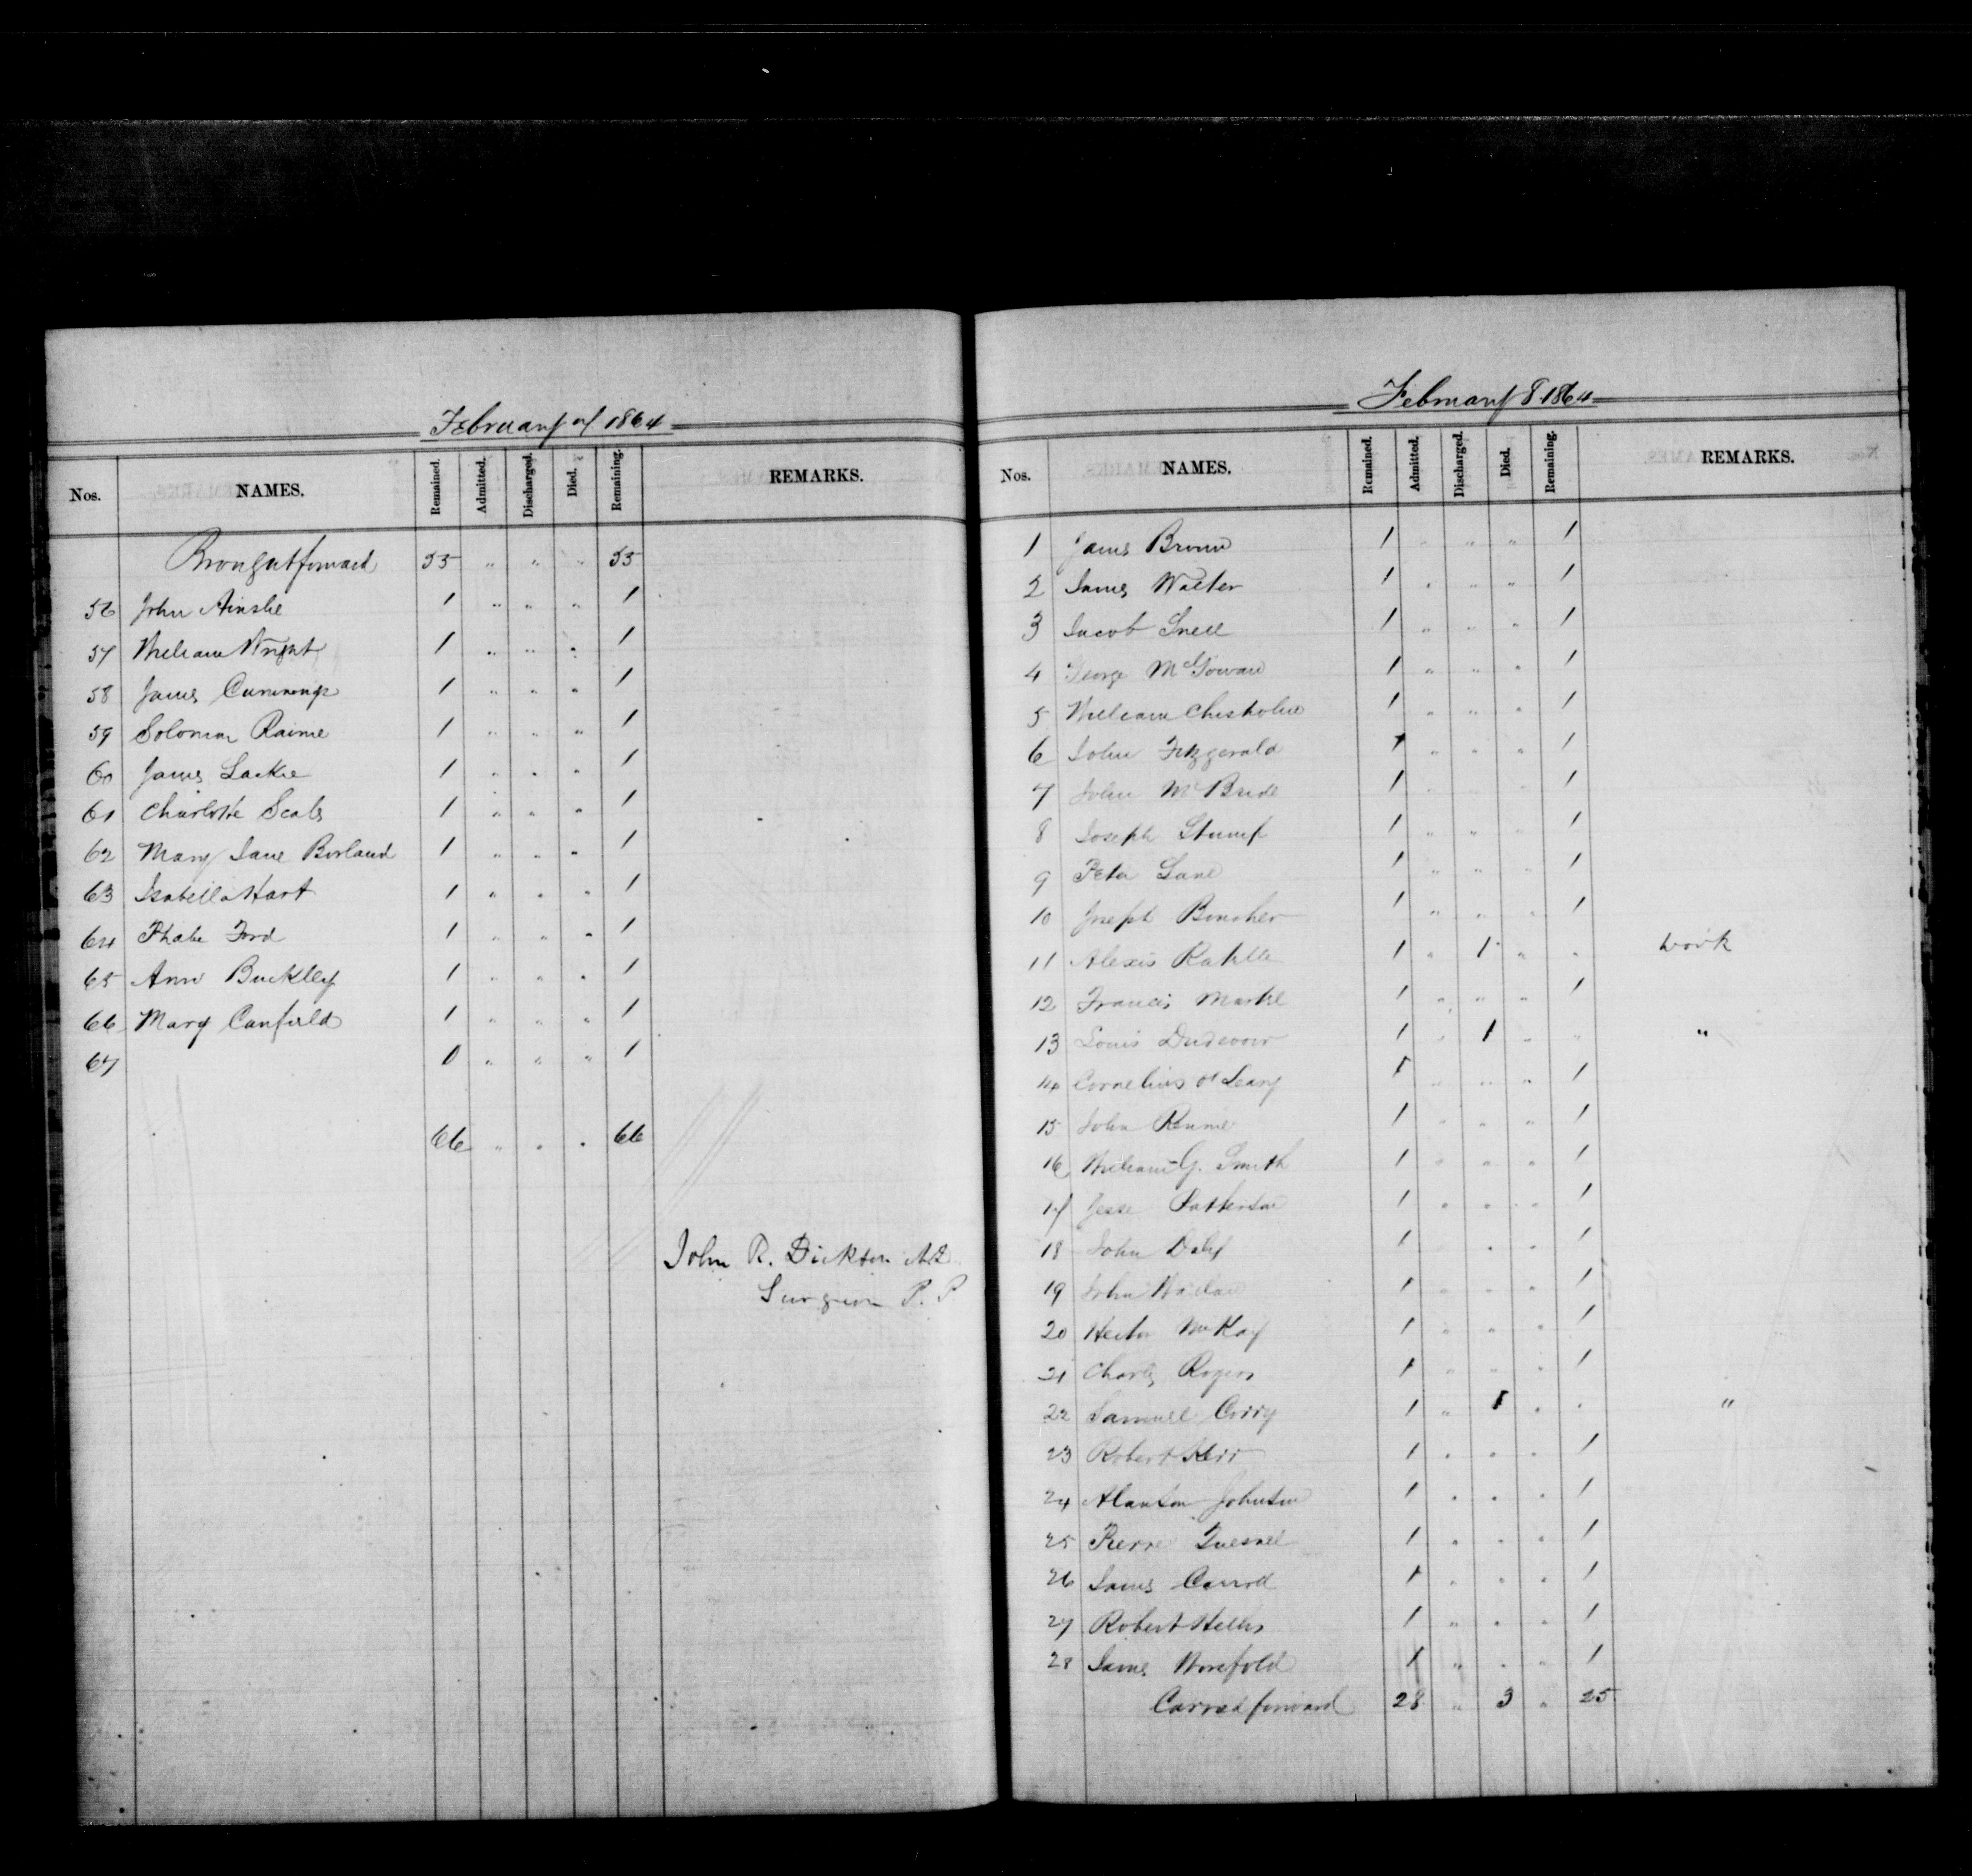 February 7 1864
Nos. NAMES. Remained. Admitted. Discharged. Died. Remaining. REMARKS.
Brought forward 55 " " " 55
56 John Ainslie 1 " " " 1
57 William Wright 1 " " " 1
58 James Cummings 1 " " " 1
59 Solomon Rainie 1 " " " 1
60 James Lackie 1 " " " 1
61 Charlotte Scales 1 " " " 1
62 Mary Jane Borland 1 " " " 1
63 Isabella Hart 1 " " " 1
64 Phabe Ford 1 " " " 1
65 Ann Buckley 1 " " " 1
66 Mary Canfield 1 " " " 1
67 0 " " " 1
66 " " " 66
John R. Dickson M.D.
Surgeon P. P
February 8 1864
Nos. NAMES. Remained. Admitted. Discharged. Died. Remaining. REMARKS.
1 James Brown 1 " " " 1
2 James Walter 1 " " " 1
3 Jacob Snell 1 " " " 1
4 George McGowan 1 " " " 1
5 William Chisholm 1 " " " 1
6 John Fitzgerald 1 " " " 1
7 John McBride 1 " " " 1
8 Joseph Stumpf 1 " " " 1
9 Peter Lane 1 " " " 1
10 Joseph Boucher 1 " " " 1
11 Alexis 1 " 1 " " work
12 Francis Markle 1 " " " 1
13 Louis 1 " 1 " " "
14 Cornelius O'Leary 1 " " " 1
15 John Rennie 1 " " " 1
16 William G. Smith 1 " " " 1
17 Jesse Patterson 1 " " " 1
18 John Daly 1 " " 1
19 John 1 " " " 1
20 Hector McKay 1 " " " 1
21 Charles Rogers 1 " " " 1
22 Samuel Corry 1 " 1 " " "
23 Robert Kerr 1 " " " 1
24 Alanson Johnson 1 " " " 1
25 Pierre Quesnel 1 " " " 1
26 James Carroll 1 " " " 1
27 Robert 1 " " " 1
28 James Worsfold 1 " " " 1
Carried forward 28 " 3 " 25